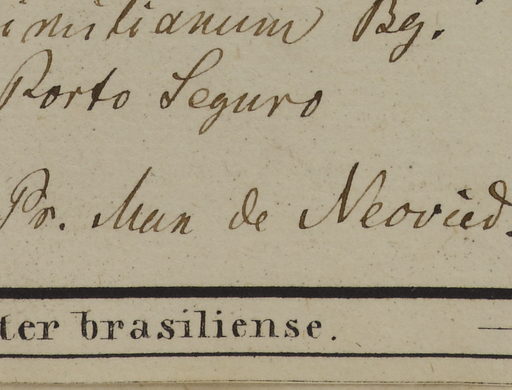 imilianum Bg.
Porto Seguro
Pr. Max de Neovied.
ter brasiliense.